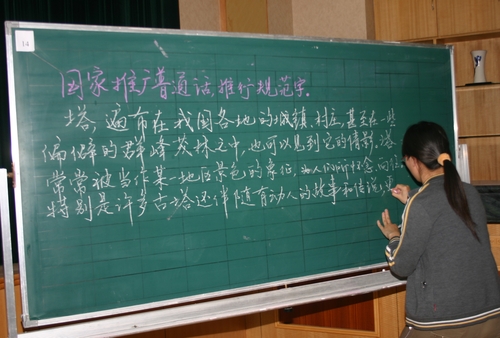 14
国家推广普通话,推行规范字.
塔,遍布在我国各地的城镇,村庄,甚至在一些
偏僻的群峰茂林之中,也可以见到它的情影.塔
常常被当作某一地区景色的象征,为人们所怀念,向往
特别是许多古塔还伴随有动人的故事和传说,